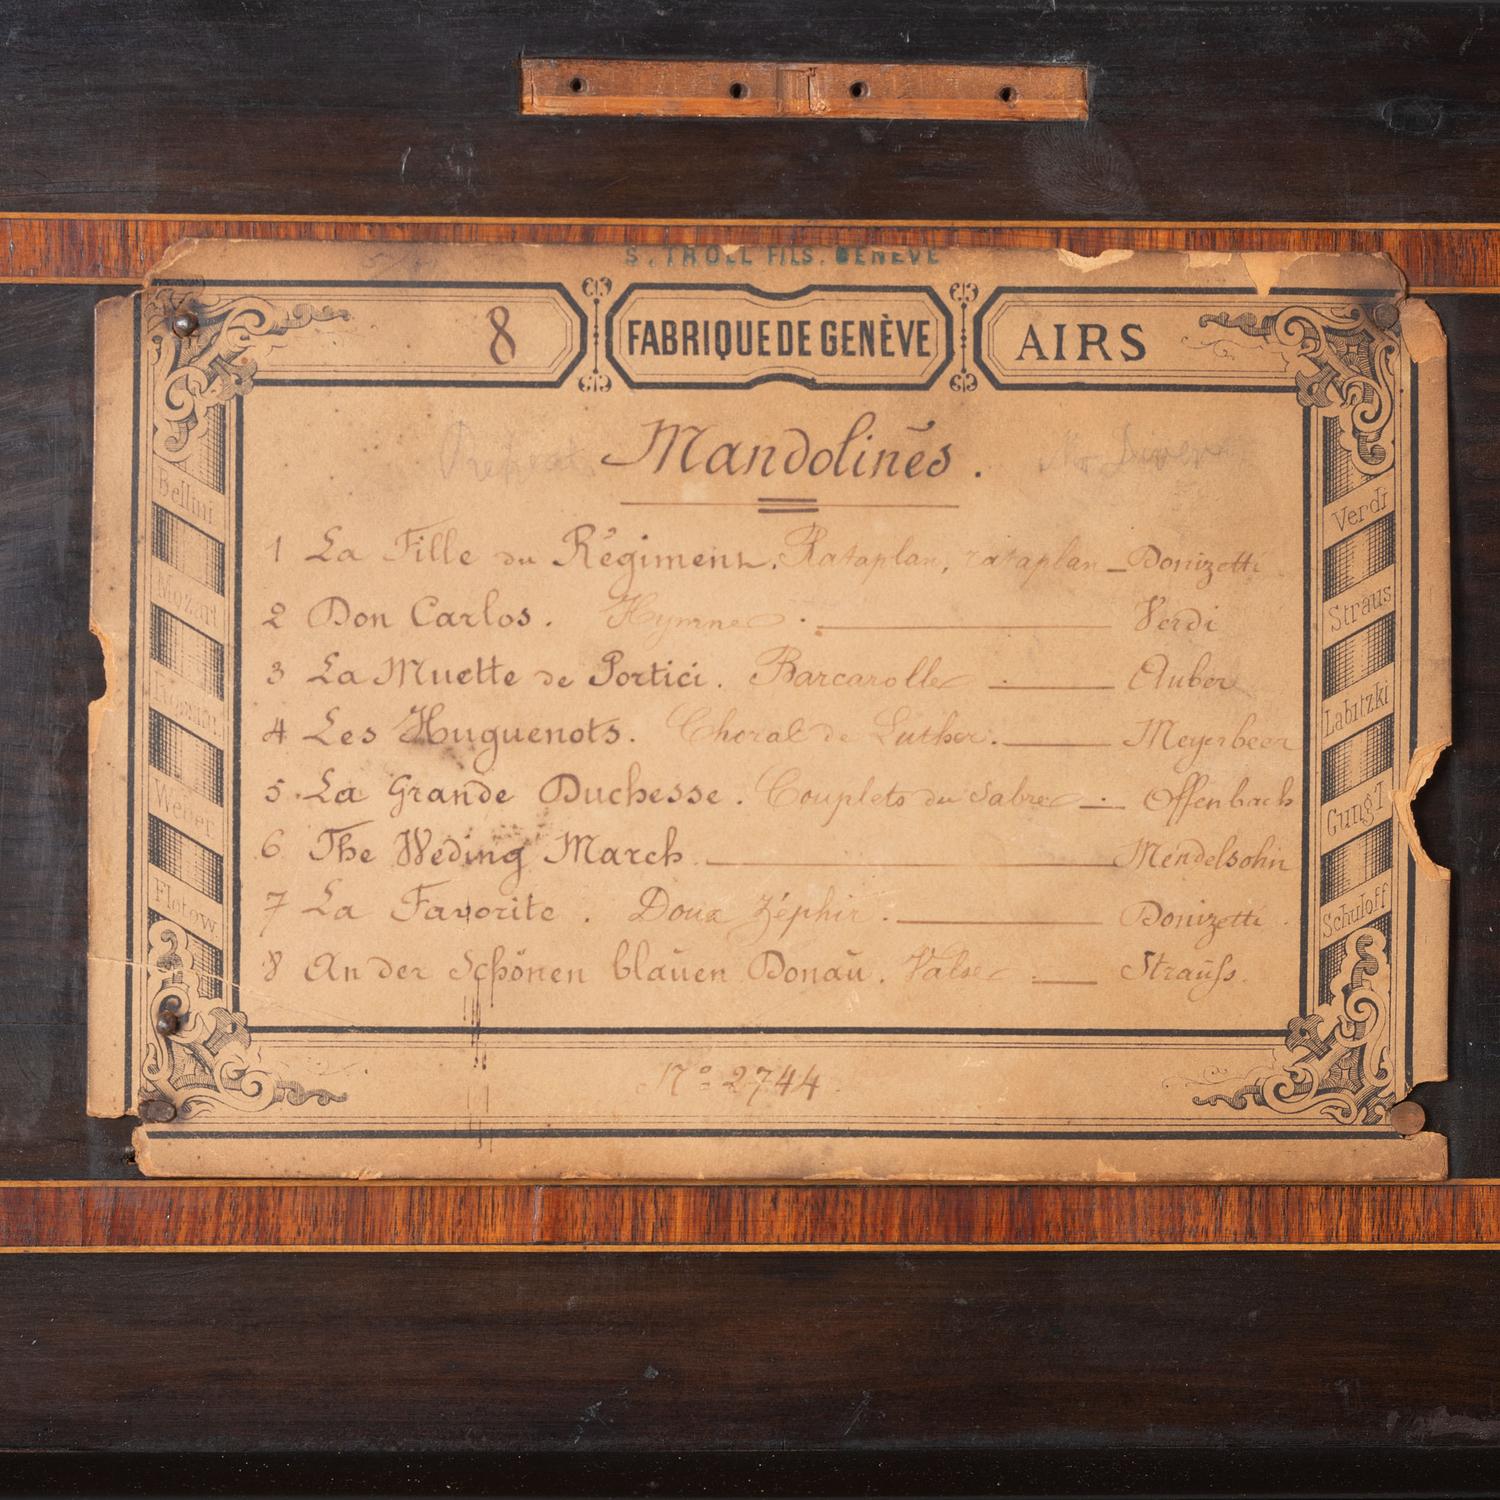 S. TROLL FILS. GENEVE
8 FABRIQUE DE GENÈVE AIRS
Mandolines.
1 La Fille du Régiment. Rataplan, rataplan Donizetti
2 Don Carlos. Hymne Verdi
3 La Muette de Portici. Barcarolle Auber
4 Les Huguenots. Choral de Luther. Meyerbeer
5. La Grande Duchesse. Couplets du Sabre Offenbach
6 The Weding March Mendelsohn
7 La Favorite. Doux Zéphir. Donizetti.
8 An der Schönen blauen Donau. Valse Strauß.
No 2744.
Bellini
Mozart
Rossini
Weber
Flotow
Verdi
Straus
Labitzki
Gung'l
Schuloff